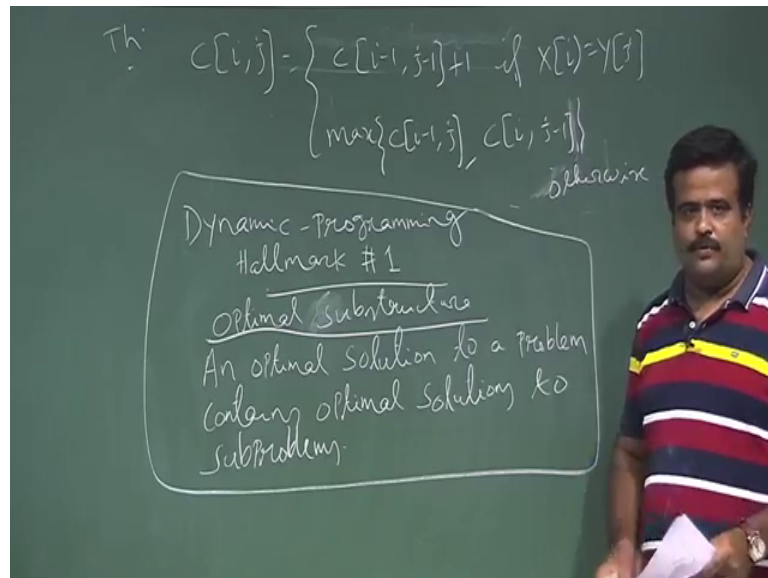 Th: C[i,j] = { C[i-1, j-1]+1 if X[i]=Y[j]
max{C[i-1,j], C[i, j-1]}
otherwise
Dynamic-Programming
Hallmark #1
Optimal Substructure
An optimal solution to a problem
contains optimal solutions to
subproblems.